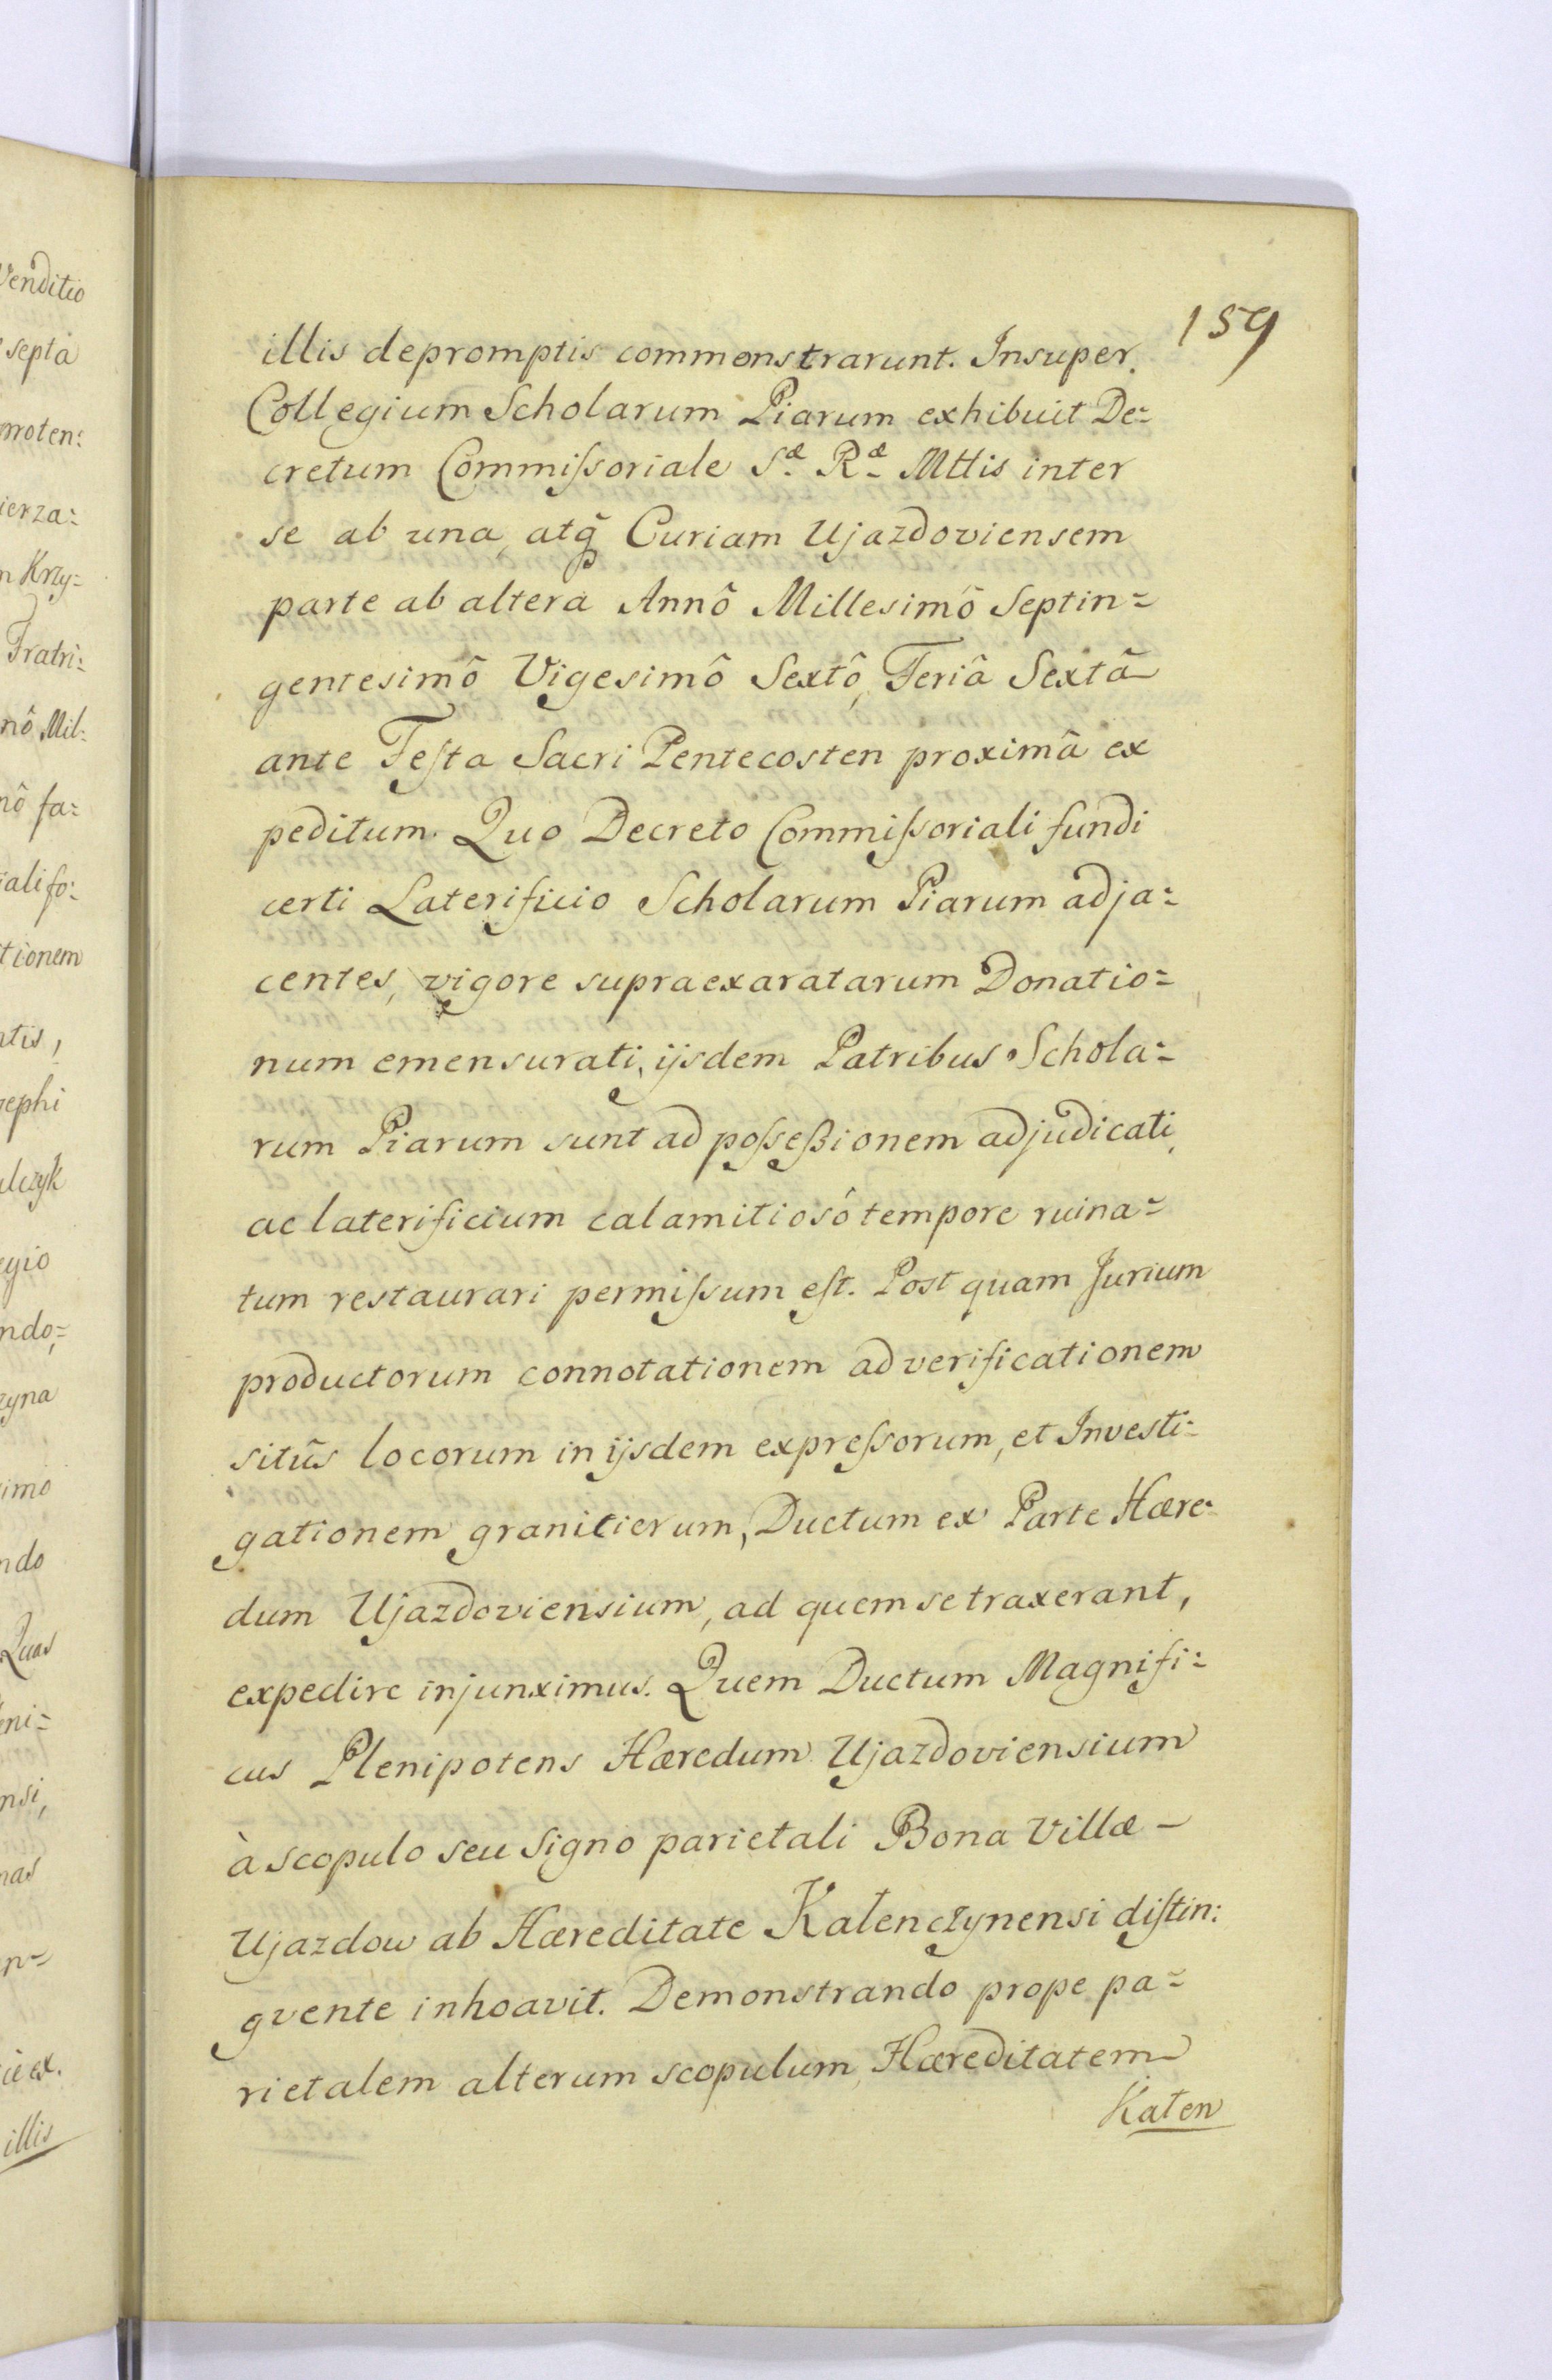 159
illis depromptis commonstrarunt. Insuper.
Collegium Scholarum Piarum exhibuit De=
cretum Commiſsoriale Sᵃᵉ Rᵃᵉ Mttis inter
se ab una, atq̃ Curiam Ujazdoviensem
parte ab altera Annô Millesimô Septin=
gentesimô Vigesimô Sextô, Feriâ Sextâ
ante Feſta Sacri Pentecosten proximâ ex
peditum. Quo Decreto Commiſsoriali fundi
certi Laterificio Scholarum Piarum adja=
centes, vigore supraexaratarum Donatio=
num emensurati, ijsdem Patribus Schola=
rum Piarum sunt ad poſseßionem adjudicati,
ac laterificium calamitiosô tempore ruina=
tum restaurari permiſsum eſt. Post quam Jurium
productorum connotationem ad verificationem
sitûs locorum in ijsdem expreſsorum, et Investi=
gationem granicierum, Ductum ex Parte Hære=
dum Ujazdoviensium, ad quem se traxerant,
expedire injunximus. Quem Ductum Magnifi=
cus Plenipotens Hæredum Ujazdoviensium
à scopulo seu Signo parietali Bona Villæ –
Ujazdow ab Hæreditate Kałenczynensi diſtin:
gvente inhoavit. Demonstrando prope pa=
rietalem alterum scopulum, Hæreditatem
Kałen
Venditio
septa
ierza=
Krzy=
Fratri=
nô Mil=
nô fa=
ali fo=
tionem
Quas
illis